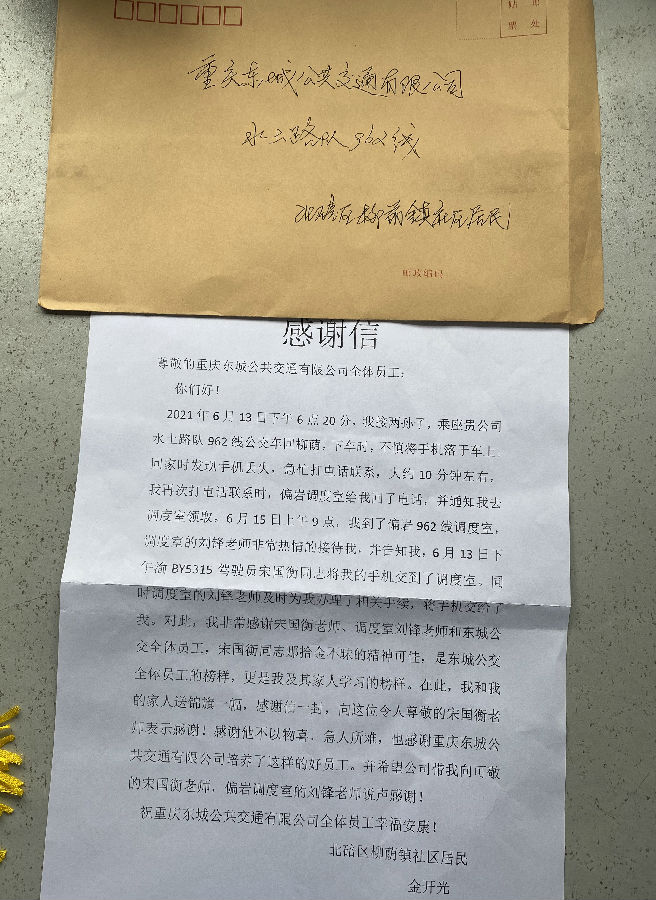 贴 邮
票 处
重庆东城公共交通有限公司
水土路队962线
北碚区柳荫镇社区居民
邮政编码
感谢信
尊敬的重庆东城公共交通有限公司全体员工：
你们好！
2021年6月13日下午6点20分，我接两孙子，乘座贵公司
水土路队962线公交车回柳荫，下车时，不慎将手机落于车上，
回家时发现手机丢失，急忙打电话联系，大约10分钟左右，
我再次打电话联系时，偏岩调度室给我回了电话，并通知我去
调度室领取，6月15日上午9点，我到了偏岩962线调度室，
调度室的刘锋老师非常热情的接待我，并告知我，6月13日下
午渝BY5315驾驶员宋国衡同志将我的手机交到了调度室。同
时调度室的刘锋老师及时为我办理了相关手续，将手机交给了
我。对此，我非常感谢宋国衡老师、调度室刘锋老师和东城公
交全体员工，宋国衡同志那拾金不昧的精神可佳，是东城公交
全体员工的榜样，更是我及其家人学习的榜样。在此，我和我
的家人送锦旗一幅，感谢信一封，向这位令人尊敬的宋国衡老
师表示感谢！感谢他不以物喜，急人所难，也感谢重庆东城公
共交通有限公司培养了这样的好员工。并希望公司带我向可敬
的宋国衡老师、偏岩调度室的刘锋老师说声感谢！
祝重庆东城公共交通有限公司全体员工幸福安康！
北碚区柳荫镇社区居民
金开光